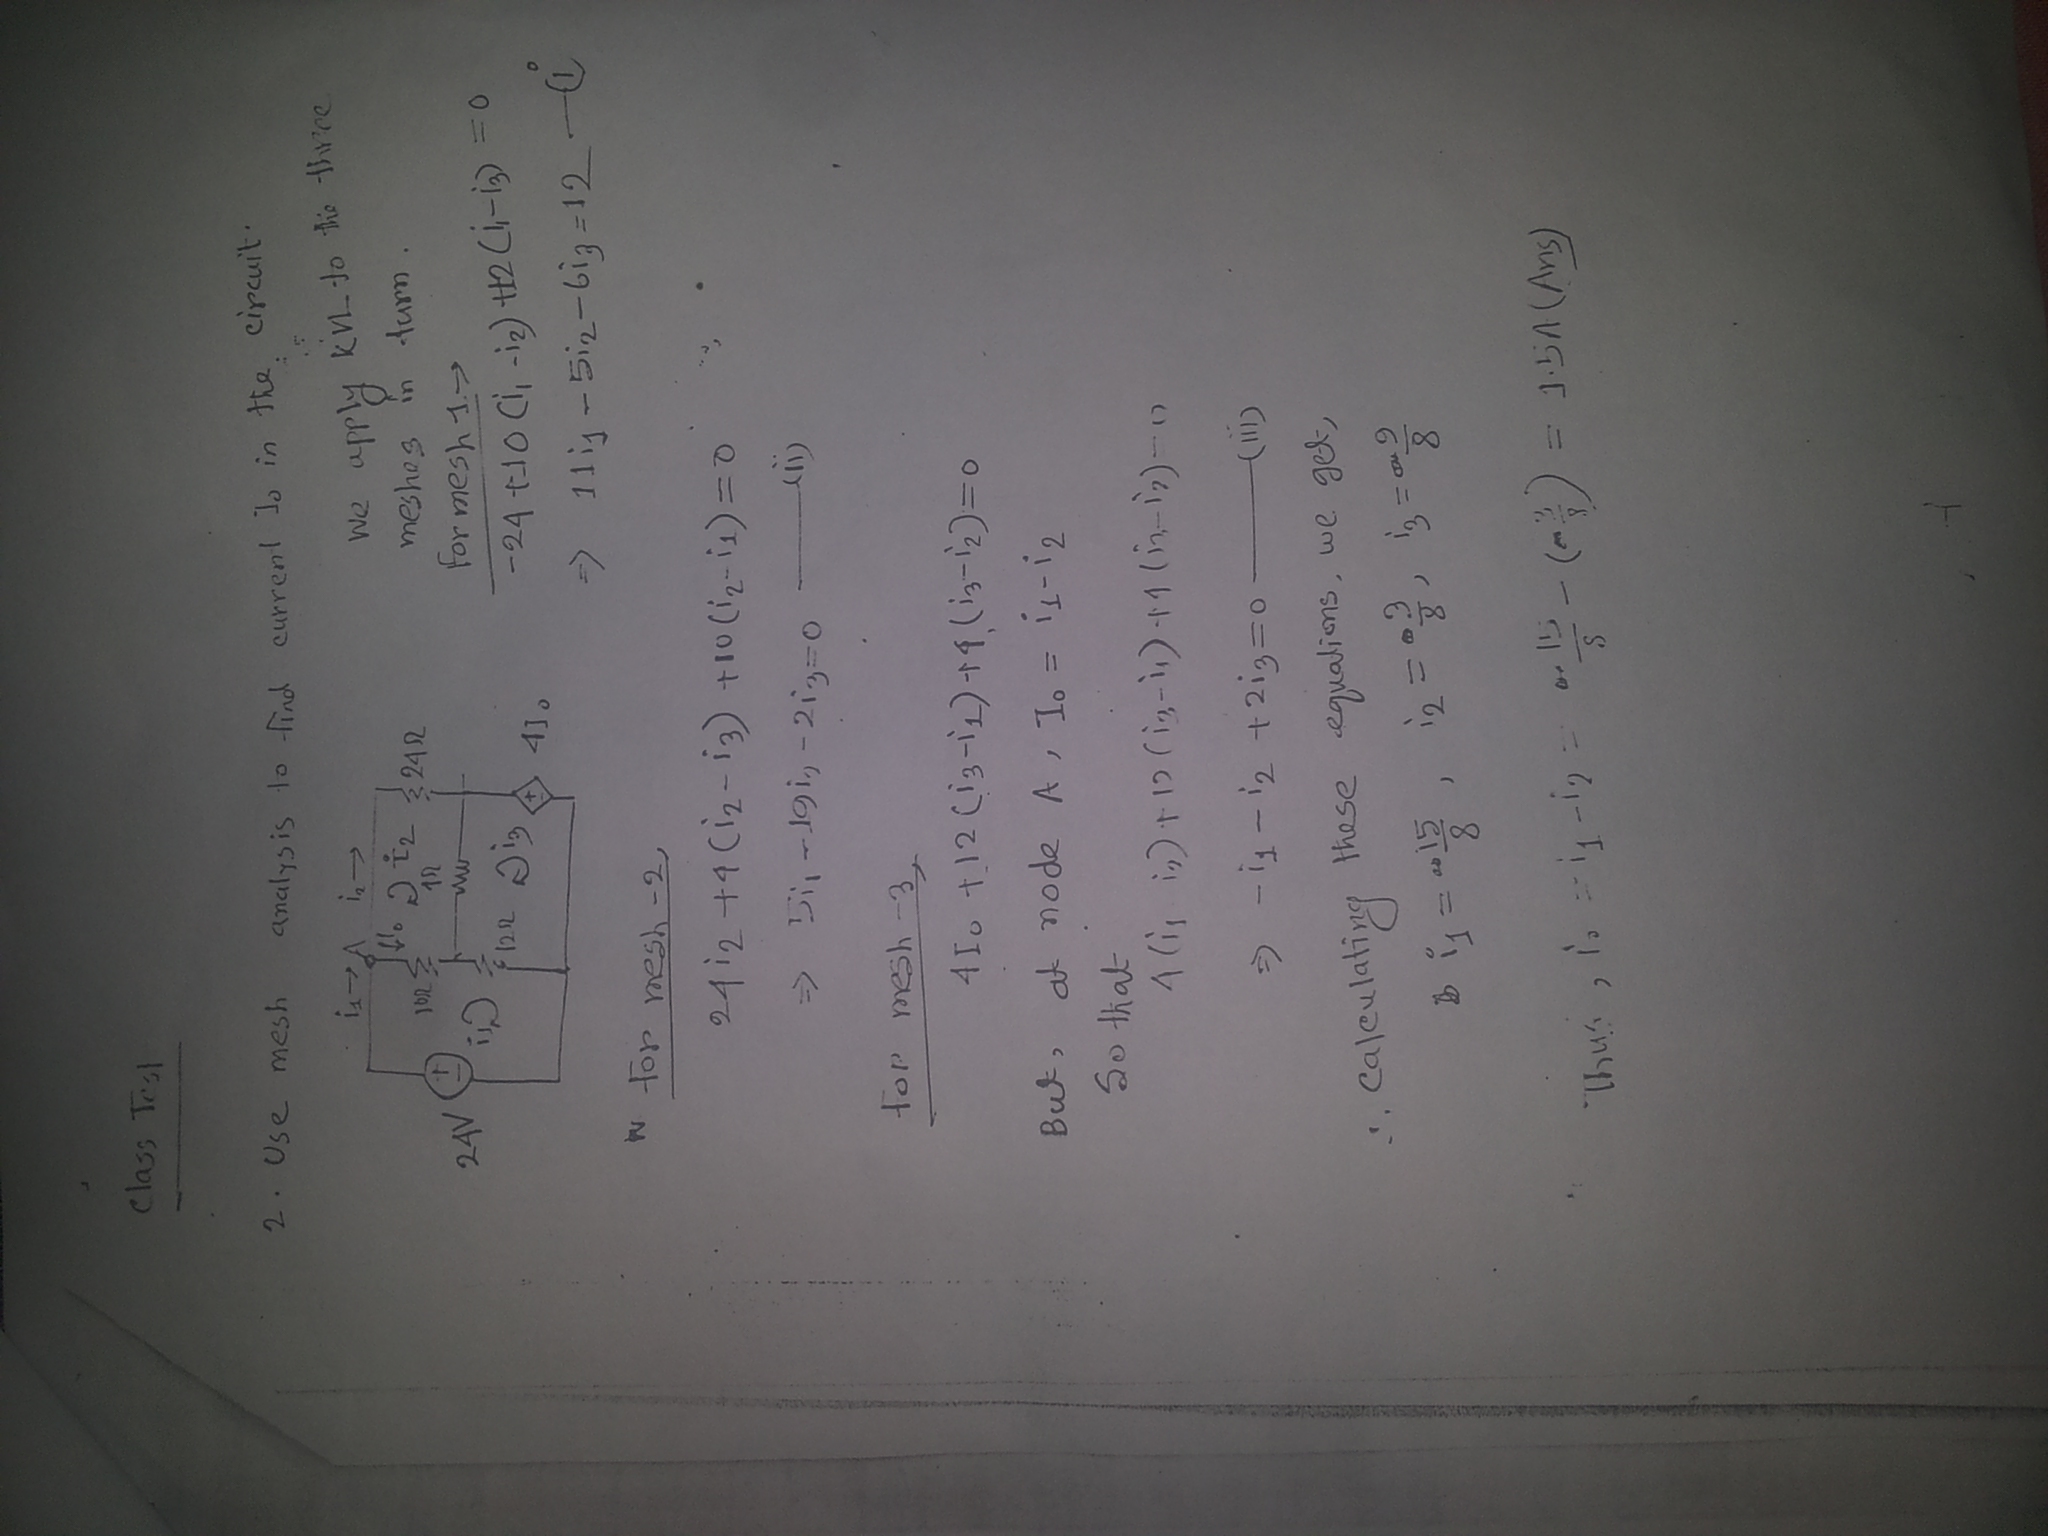 Class Test
2. Use mesh analysis to find current I₀ in the circuit.
i₁→ A i₂→
↓I₀
i₂
10Ω
24Ω
4Ω
24V
i₁
12Ω
i₃
4I₀
We apply KVL to the three
meshes in turn.
For mesh 1→
-24+10(i₁-i₂)+12(i₁-i₃)=0
⇒ 11i₁-5i₂-6i₃=12 —(i
for mesh -2,
24i₂+4(i₂-i₃)+10(i₂-i₁)=0
⇒ 5i₁-19i₂-2i₃=0 —(ii)
for mesh -3,
4I₀+12(i₃-i₁)+4(i₃-i₂)=0
But, at node A, I₀ = i₁-i₂
So that
4(i₁-i₂)+12(i₃-i₁)+4(i₃-i₂)=0
⇒ -i₁-i₂+2i₃=0 —(iii)
∴ Calculating these equations, we get,
i₁=15/8, i₂=3/8, i₃=9/8
Thus, i₀=i₁-i₂=15/8-(3/8)=1.5A (Ans)